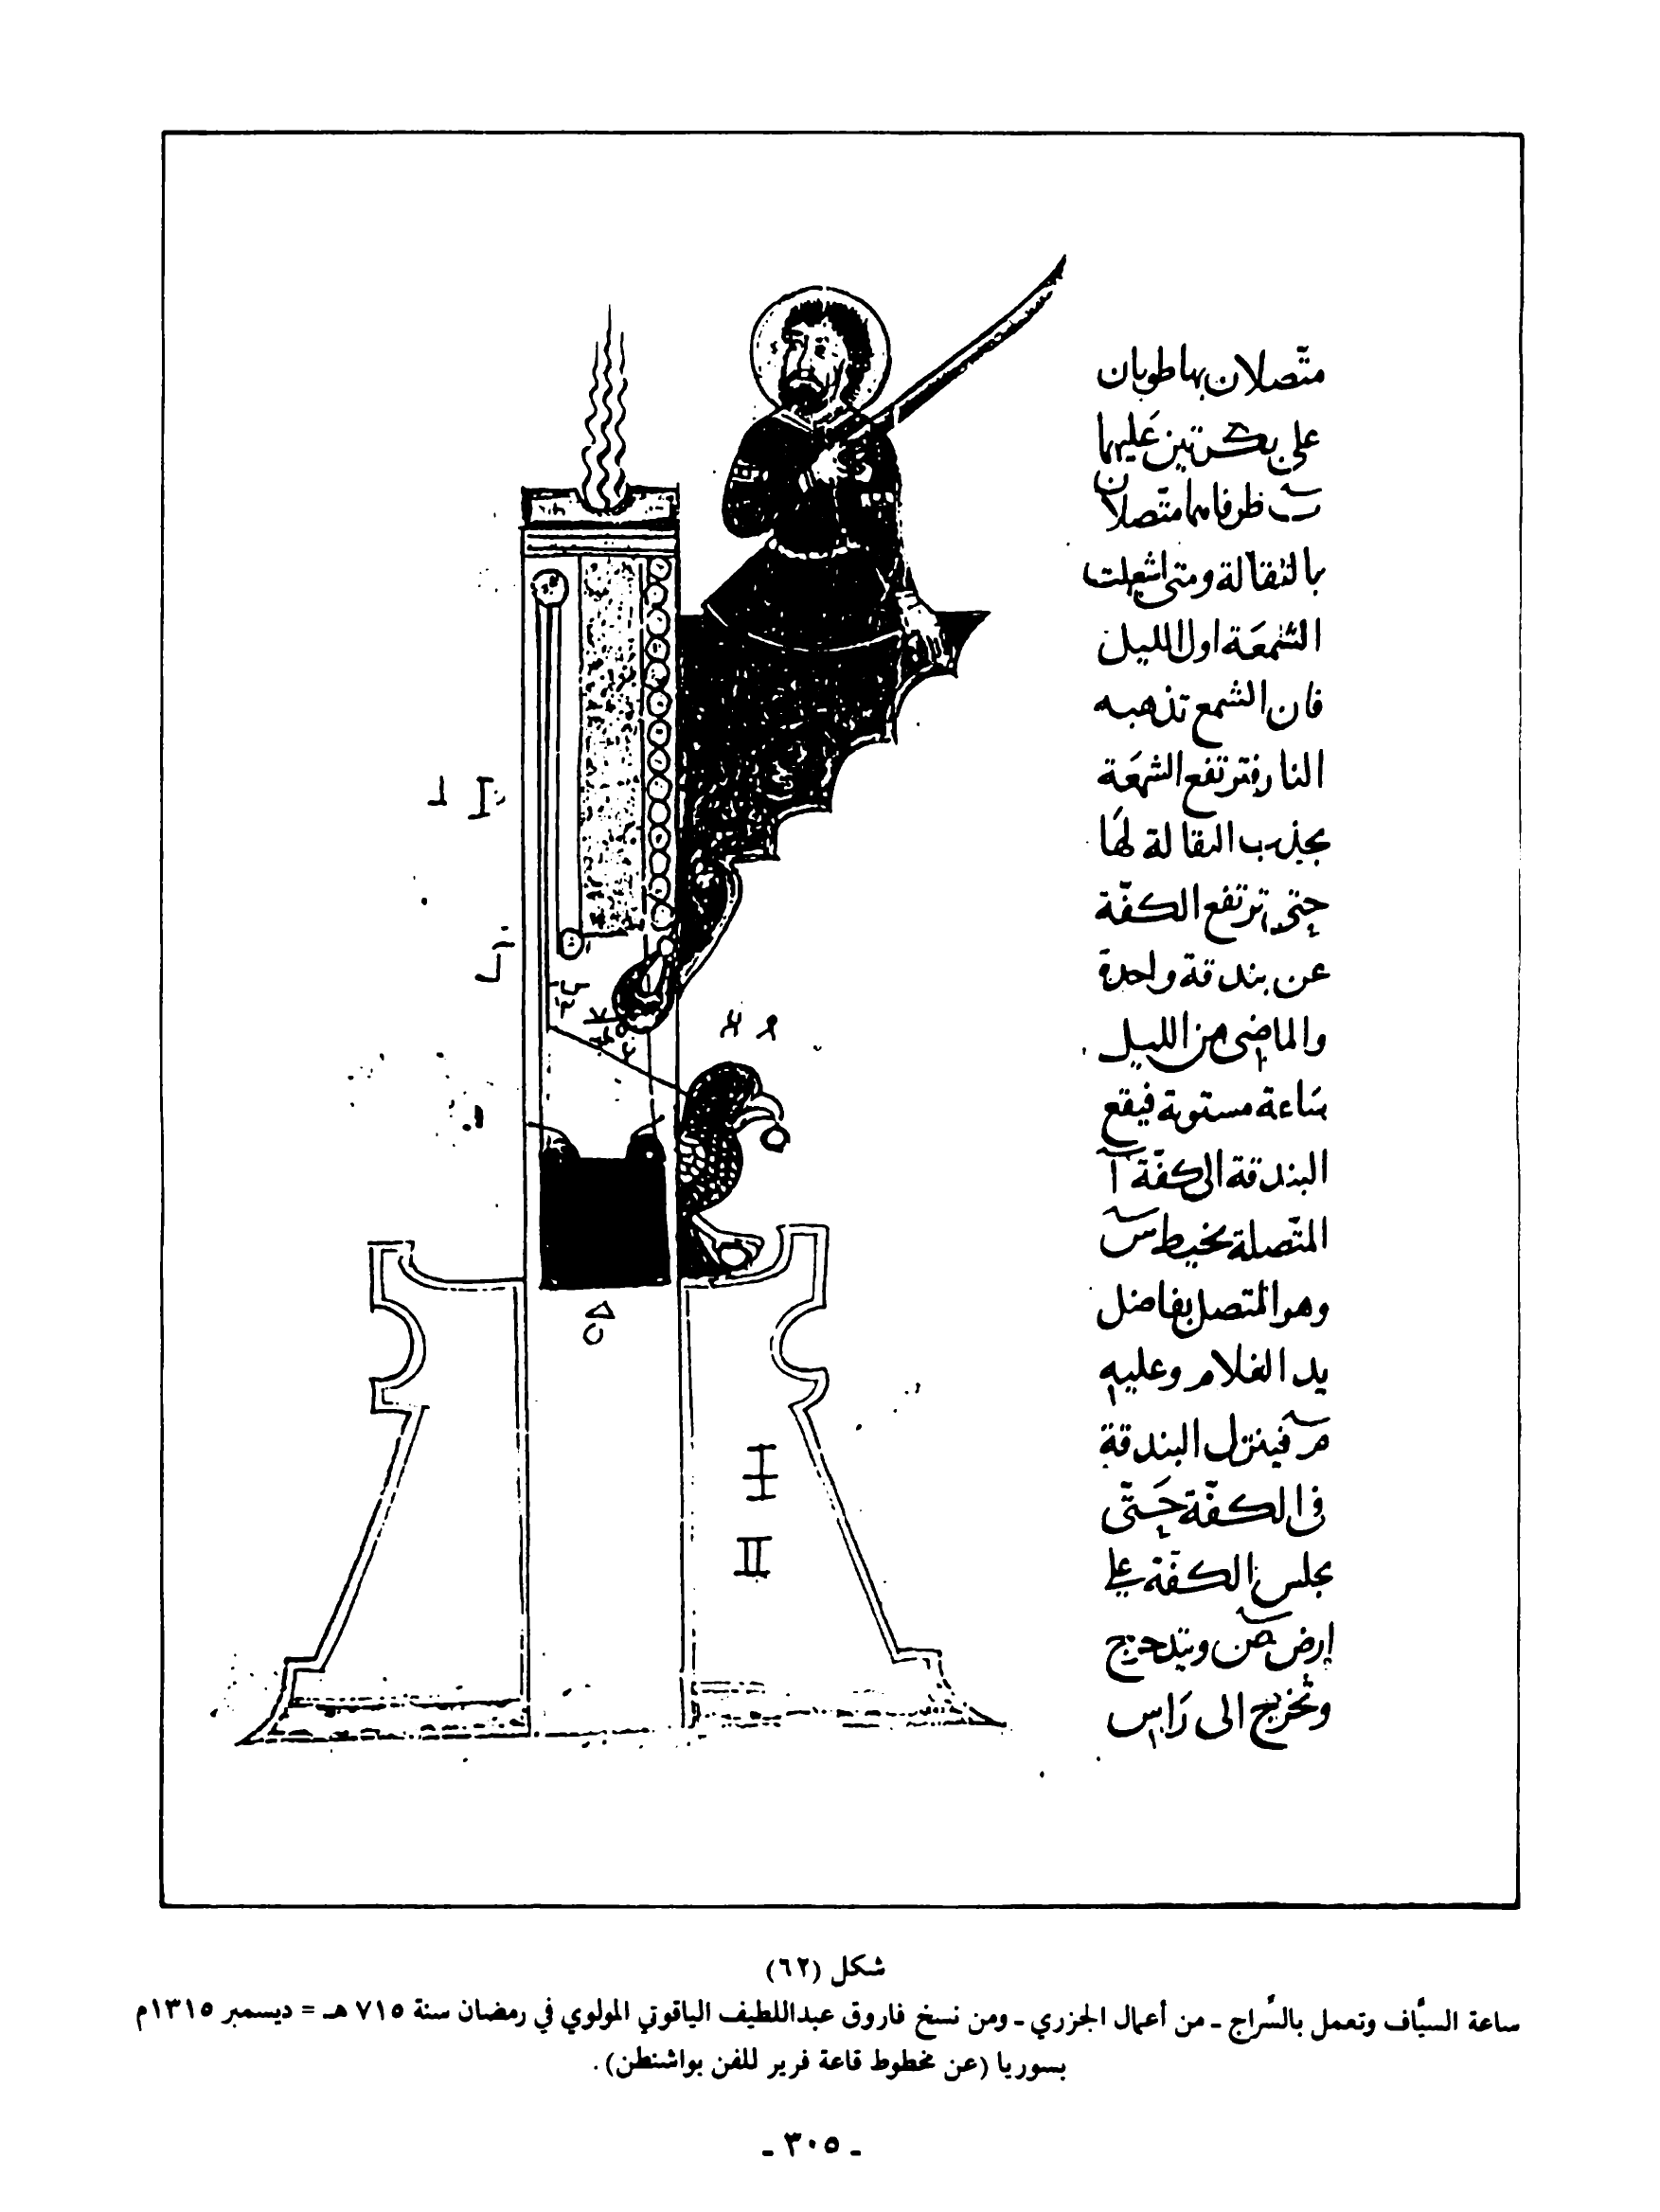 متّصلان بها طويان
على بكرتين عَليهما
ت ظرفاهما متّصلان
بالثقالة ومتى اشعلت
الشمعَة اول الليل
فان الشمع تذهبه
النار فترتفع الشمعَة
بجذب الثقالة لهَا
حتى ترتفع الكفّة
عن بندقة واحدة
والماضى من الليل
سَاعة مستوية فيقع
البندقة الى كفّة آ
المتّصلة بخيط س
وهو المتصل بفاضل
يد الغلام وعليه
م فينزل البندقة
فى الكفّة حَتّى
يجلس الكفّة على
ارض ص ويتدحرج
وتخرج الى رَاس
شكل (٦٢)
ساعة السيَّاف وتعمل بالسِّراج ـ من أعمال الجزري ـ ومن نسخ فاروق عبداللطيف الياقوتي المولوي في رمضان سنة ٧١٥ هـ = ديسمبر ١٣١٥م
بسوريا (عن مخطوط قاعة فرير للفن بواشنطن).
ـ ٣٠٥ ـ